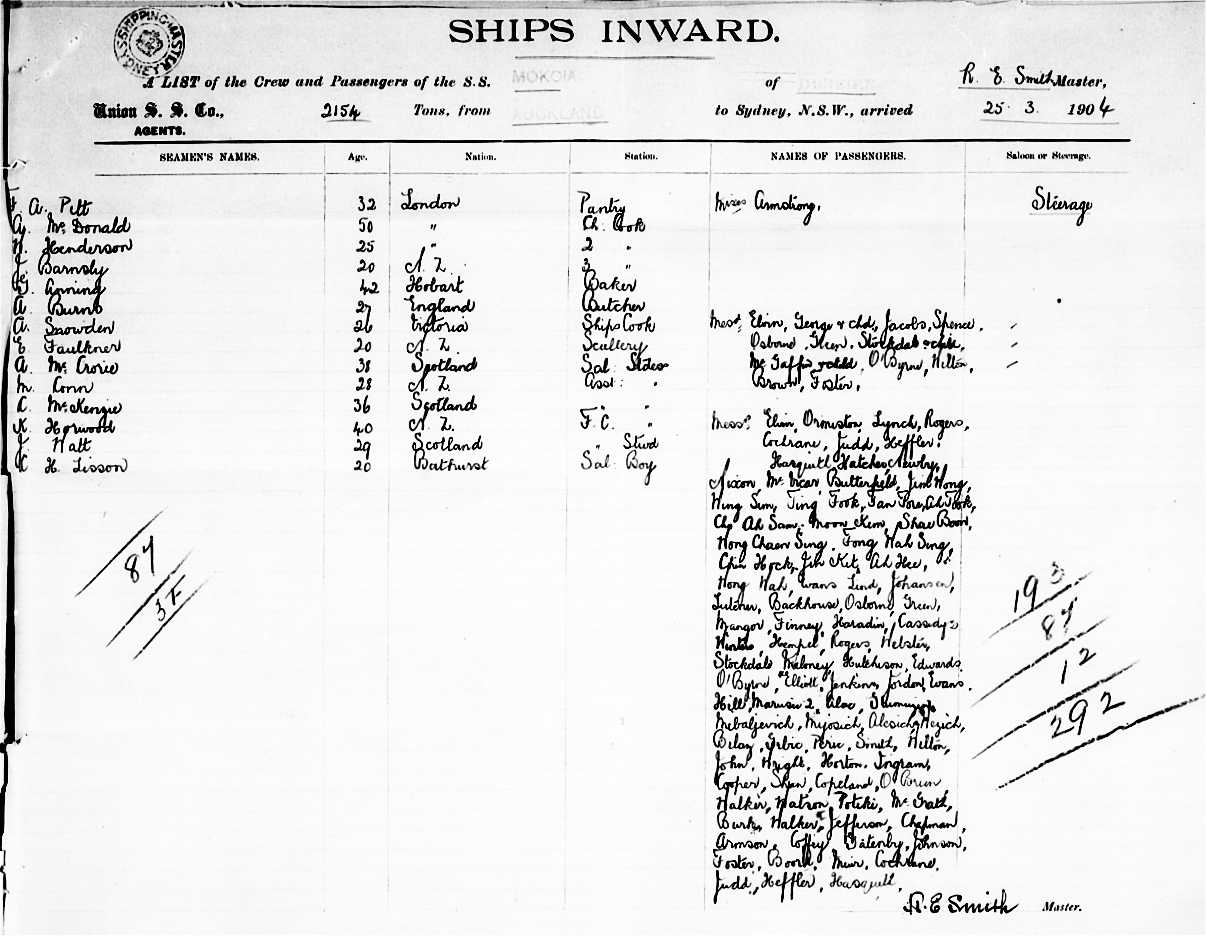 SHIPPING MASTER SYDNEY
SHIPS INWARD.
A LIST of the Crew and Passengers of the S.S. MOKOIA of R. E. Smith Master,
Union S. S. Co., 2154 Tons, from AUCKLAND to Sydney, N.S.W., arrived 25. 3. 1904
AGENTS.
SEAMEN'S NAMES. Age. Nation. Station. NAMES OF PASSENGERS. Saloon or Steerage.
A. Pitt 32 London Pantry Misses Armstrong, Steerage
Mc Donald 50 " Ch. Cook
Henderson 25 " 2 "
J. Barnsly 20 N. Z. 3 "
G. Anning 42 Hobart Baker
A. Burns 27 England Butcher
A. Snowden 26 Victoria Ships Cook Mesds Elvin, George & chd, Jacobs, Spence,
E. Faulkner 20 N. Z. Scullery Osborne, Green, Stockdale
A. Mc Crorie 38 Scotland Sal: O'Byrne, Hilton,
M. Conn 28 N. Z. Asst: " Brown, Foster,
Mc Kenzie 36 Scotland " "
K. Horwood 40 N. Z. F. C. " Messrs Elvin, Ormiston, Lynch, Rogers,
J. Watt 29 Scotland " Stwd Cochrane, Judd, Heffler,
H. Lisson 20 Bathurst Sal: Boy Hatches, Newby,
Nixon, Mc Vicar, Butterfield, Jim Wong,
Wing Sim, Ting Fook, Ah Fook,
Ah Sam, Moon Kim, Shae Boon,
Wong Chaen Sing, Fong Wah Sing,
Chin Hock, Jim Kit, Ah Hee,
Wong Wah, Evans, Lind, Johansen,
Backhouse, Osborne, Green,
Mangor, Finney, Haradin, Cassidy
Hempel, Rogers, Webster,
Stockdale, Maloney, Hutchison, Edwards,
O'Byrne, Elliott, Jenkins, Jordon, Evans,
Hill,
Mijosich, Alesich,
Smith, Hilton,
John, Wright, Horton, Ingram,
Cooper, Copeland, O'Brien
Walker, Watson, Potiki, Mc Grath,
Burk, Walker, Jefferson, Chapman,
Armson, Tatenby, Johnson,
Foster, Boord, Muir, Cochrane,
Judd, Heffler,
87
193
87
12
292
R. E Smith Master.